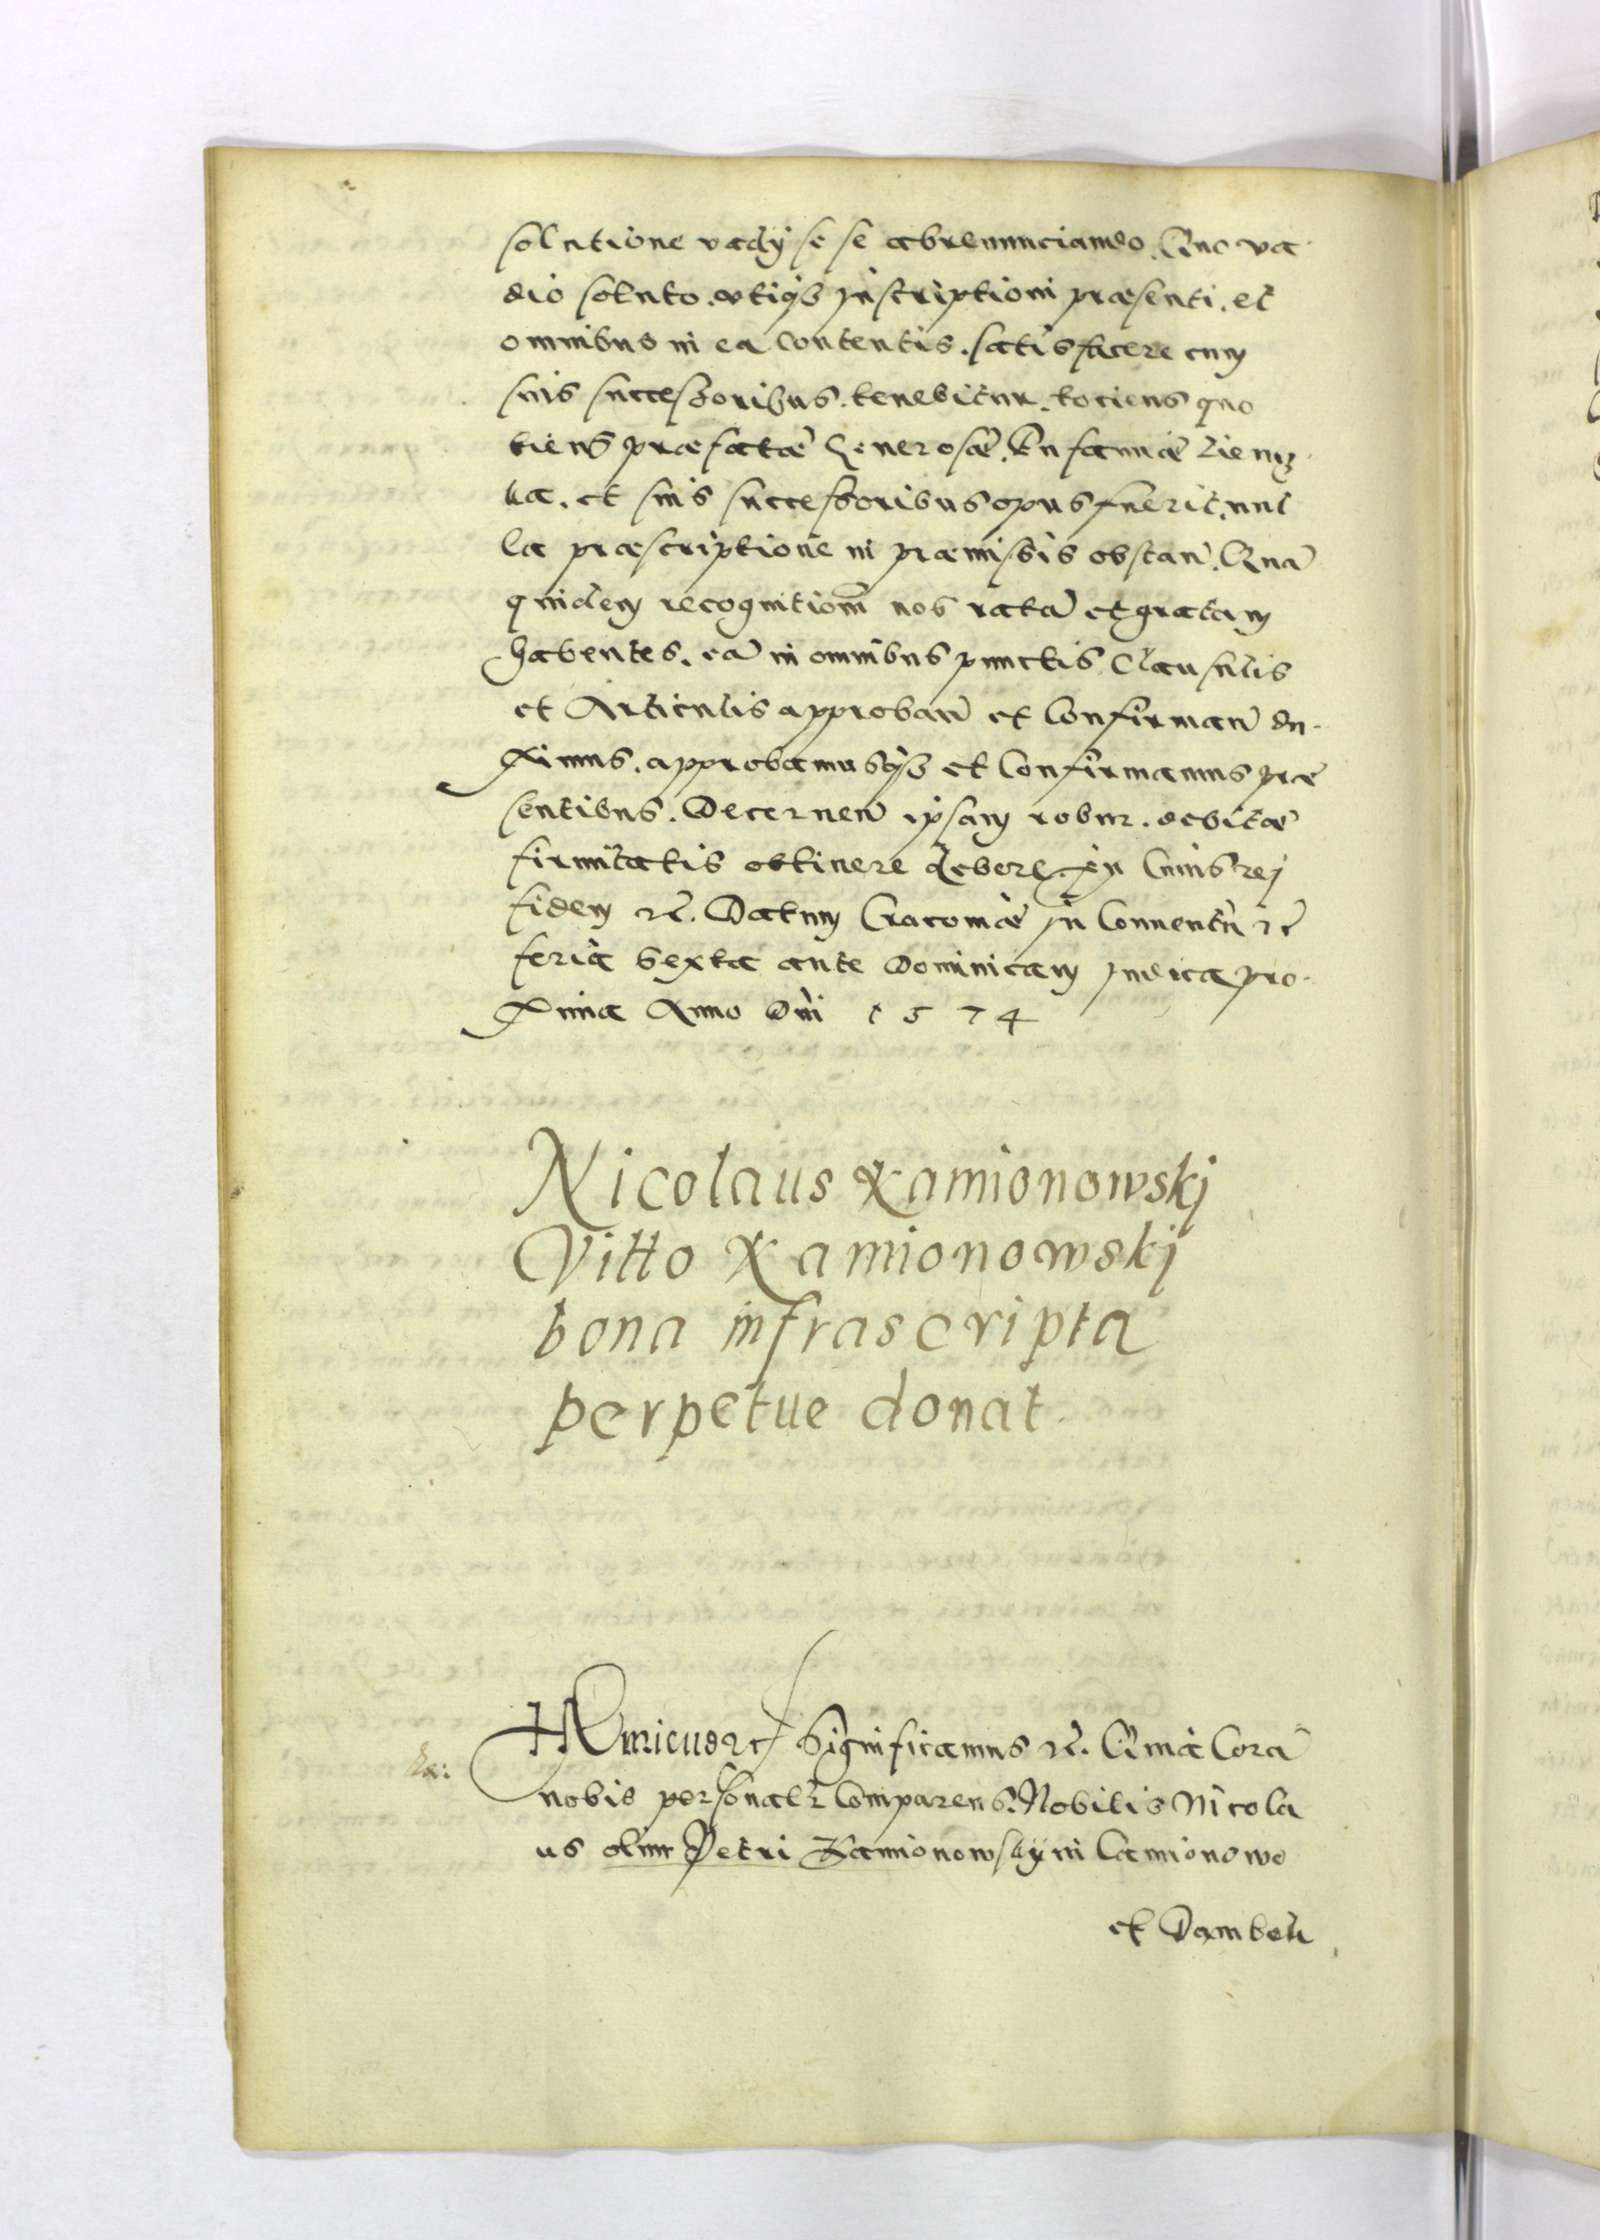 solutione vadÿ se se abrenunciando. Quo va
dio soluto. vtiq3 inscriptioni præsenti. et
omnibus in ea contentis. satisfacere cum
suis successoribus. tenebitur. tociens quo
tiens præfatæ Generosæ. Eufamiæ
ka. et suis successoribus opus fuerit. nul
la præscriptione in præmissis obstañ. Quã
quidem recognitionẽ nos ratã et gratam
habentes. eã in omnibus punctis Clausulis
et Articulis approbañ et Confirmañ du
ximus. approbamusq3 et Confirmamus præ
sentibus. Decerneñ ipsam robur. debitæ
firmitatis obtinere debere. In Cuius rej
fidem etc̃. Datum Cracoviæ in Conventu etc̃
feria Sexta ante Dominicam Iudica pro
xima Anno Dñi 1574
Nicolaus Kamionowskj
Vitto Kamionowskj
bona infrascripta
perpetue donat.
Hẽnricus etc Significamus etc̃. Quia Corã
nobis personalr̃ Comparens. Nobilis Nicola
us olim Petri Kamionowskÿ in Camionowo
et Dambeh